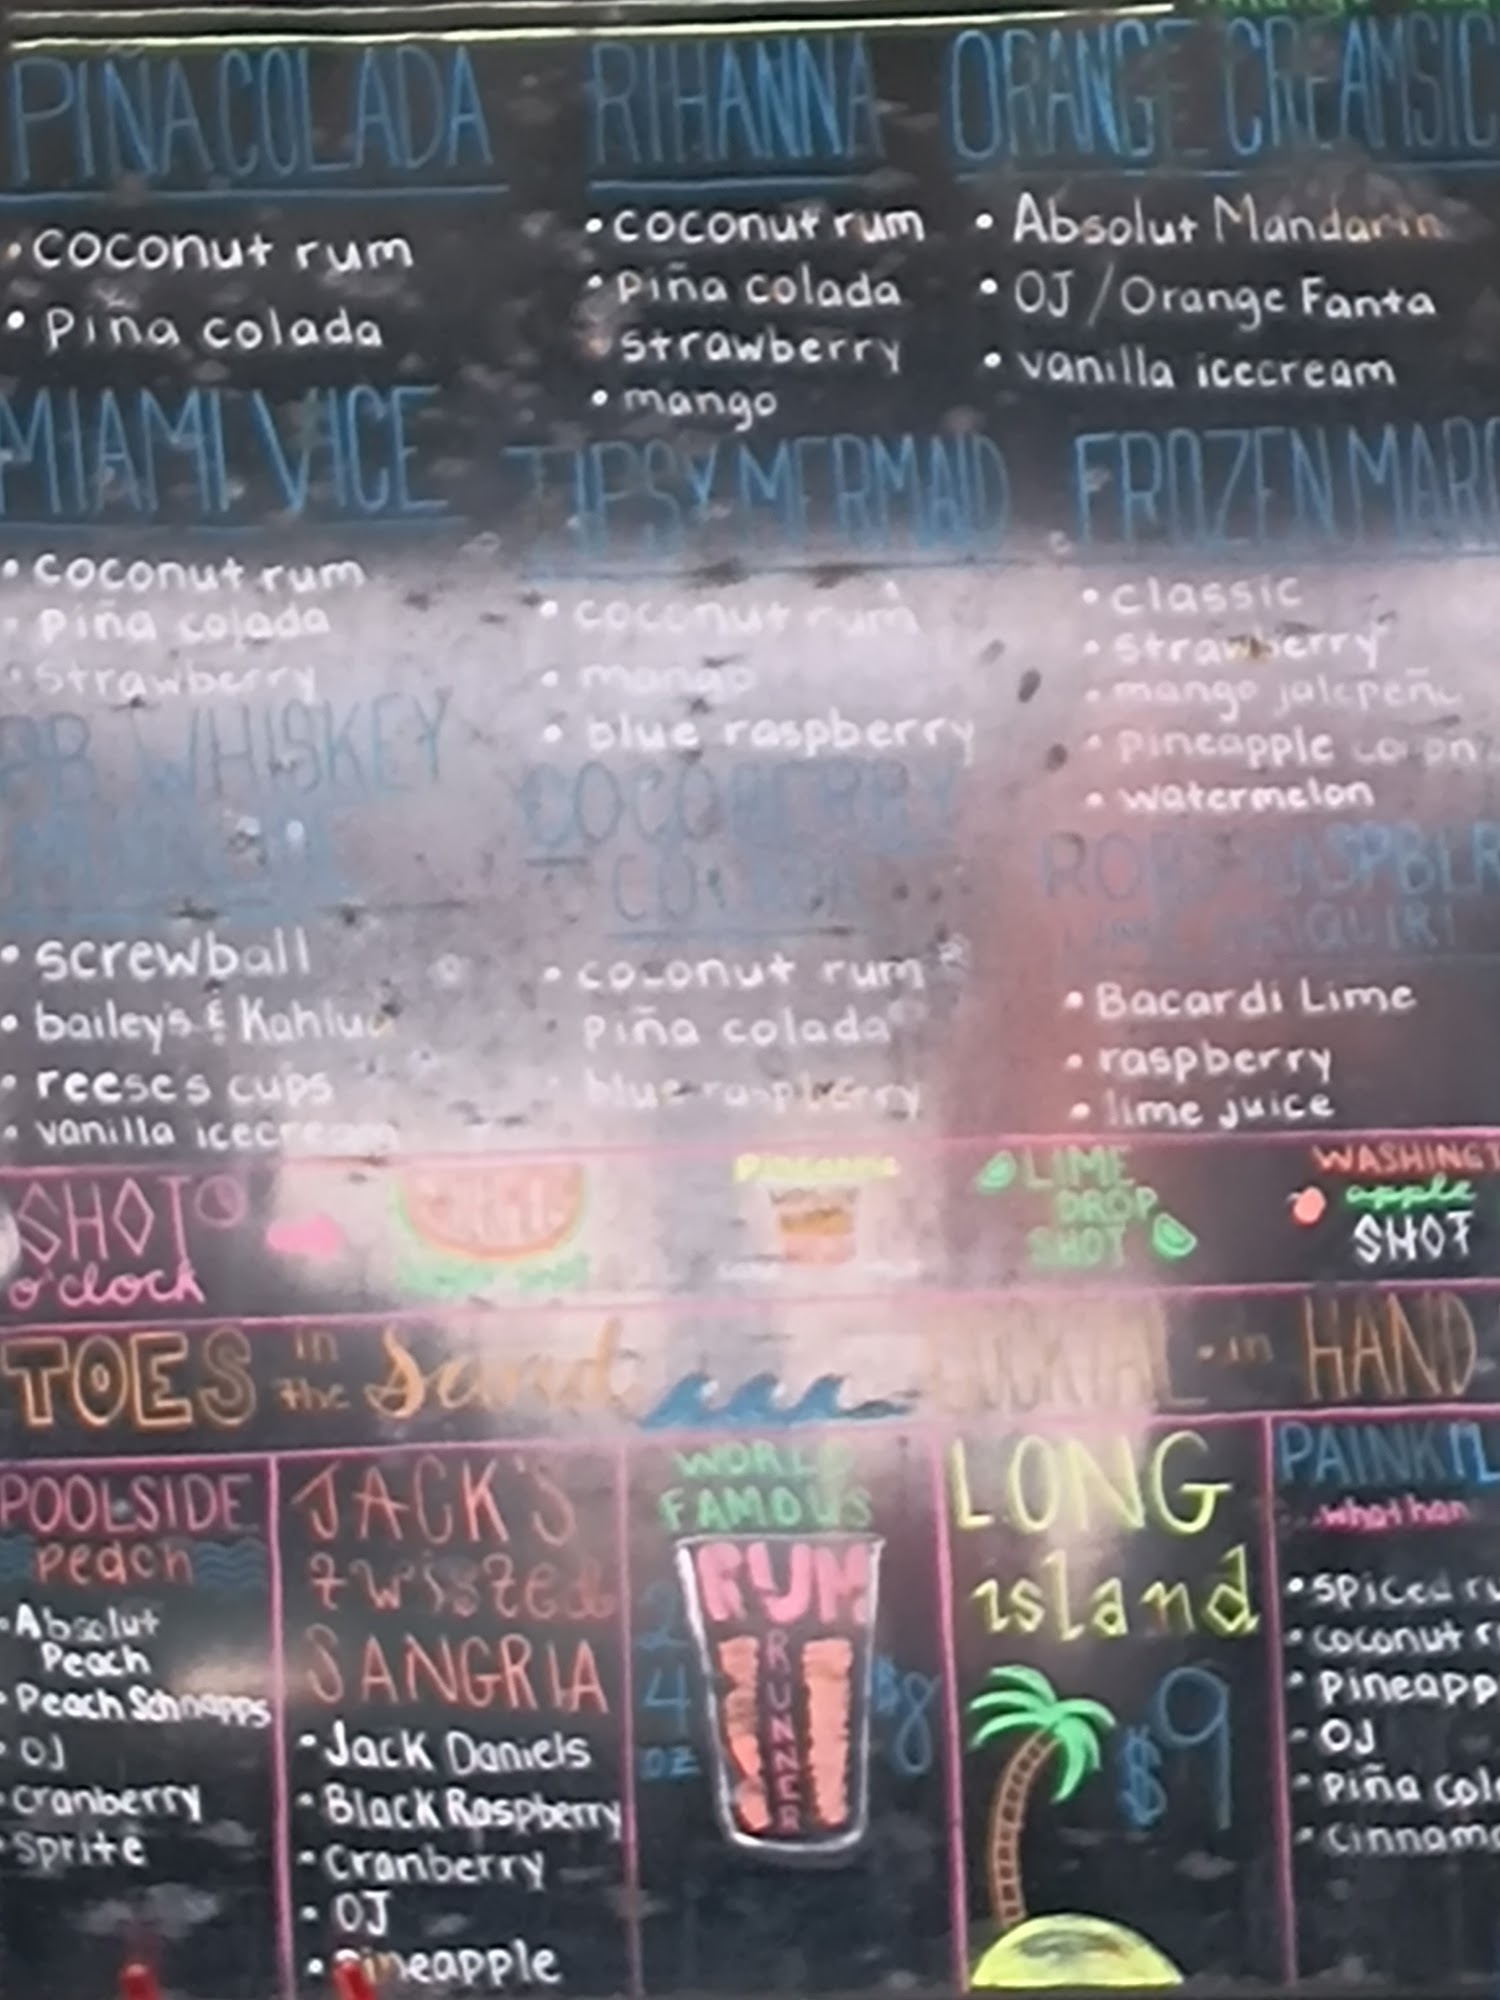 PIÑA COLADA
• coconut rum
• Piña colada
RIHANNA
• coconut rum
• Piña colada
strawberry
• mango
ORANGE CREAMSIC
• Absolut Mandarin
• OJ / Orange Fanta
• vanilla icecream
MIAMI VICE
• coconut rum
• Piña colada
• Strawberry
TIPSY MERMAID
• coconut rum
• mango
• blue raspberry
FROZEN MARG
• classic
• Strawberry
• mango jalepeño
• pineapple
• watermelon
PB WHISKEY
• screwball
• bailey's & Kahlua
• reese's cups
• vanilla icecream
COCOBERRY
• coconut rum
piña colada
blue raspberry
• Bacardi Lime
• raspberry
• lime juice
SHOT
o'clock
Pineapple
LIME
DROP
SHOT
WASHINGT
apple
SHOT
TOES in the Sand
COCKTAIL - in HAND
POOLSIDE
Peach
• Absolut
Peach
• Peach Schnapps
• OJ
• cranberry
• Sprite
JACK'S
twisted
SANGRIA
• Jack Daniels
• Black Raspberry
• Cranberry
• OJ
• Pineapple
WORLD
FAMOUS
RUM
RUNNER
24
oz
$8
LONG
island
$9
PAINKIL
• spiced ru
• coconut r
• Pineapp
• OJ
• Piña col
• Cinnamo